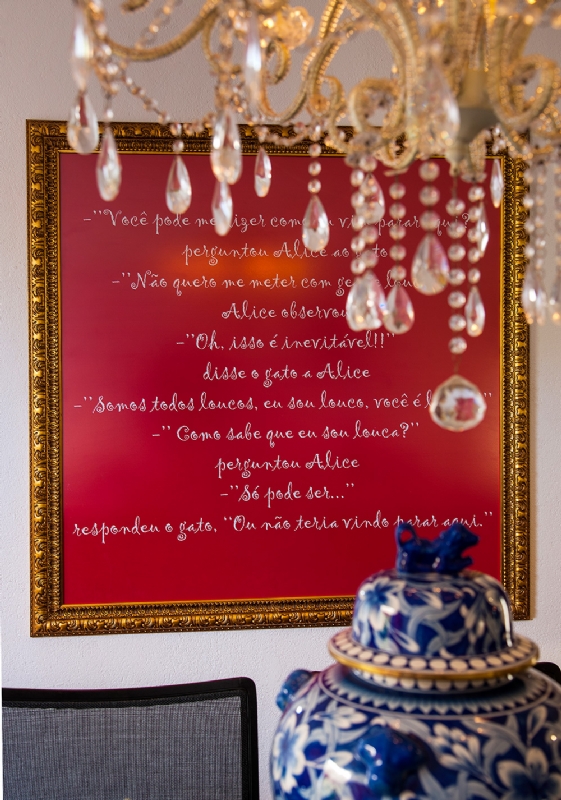 -"Você pode me dizer como eu vim parar aqui?
perguntou Alice ao gato
-"Não quero me meter com gente lou
Alice observou
-"Oh, isso é inevitável!!"
disse o gato a Alice
-"Somos todos loucos, eu sou louco, você é l
-" Como sabe que eu sou louca?"
perguntou Alice
-"Só pode ser..."
respondeu o gato, "Ou não teria vindo parar aqui."